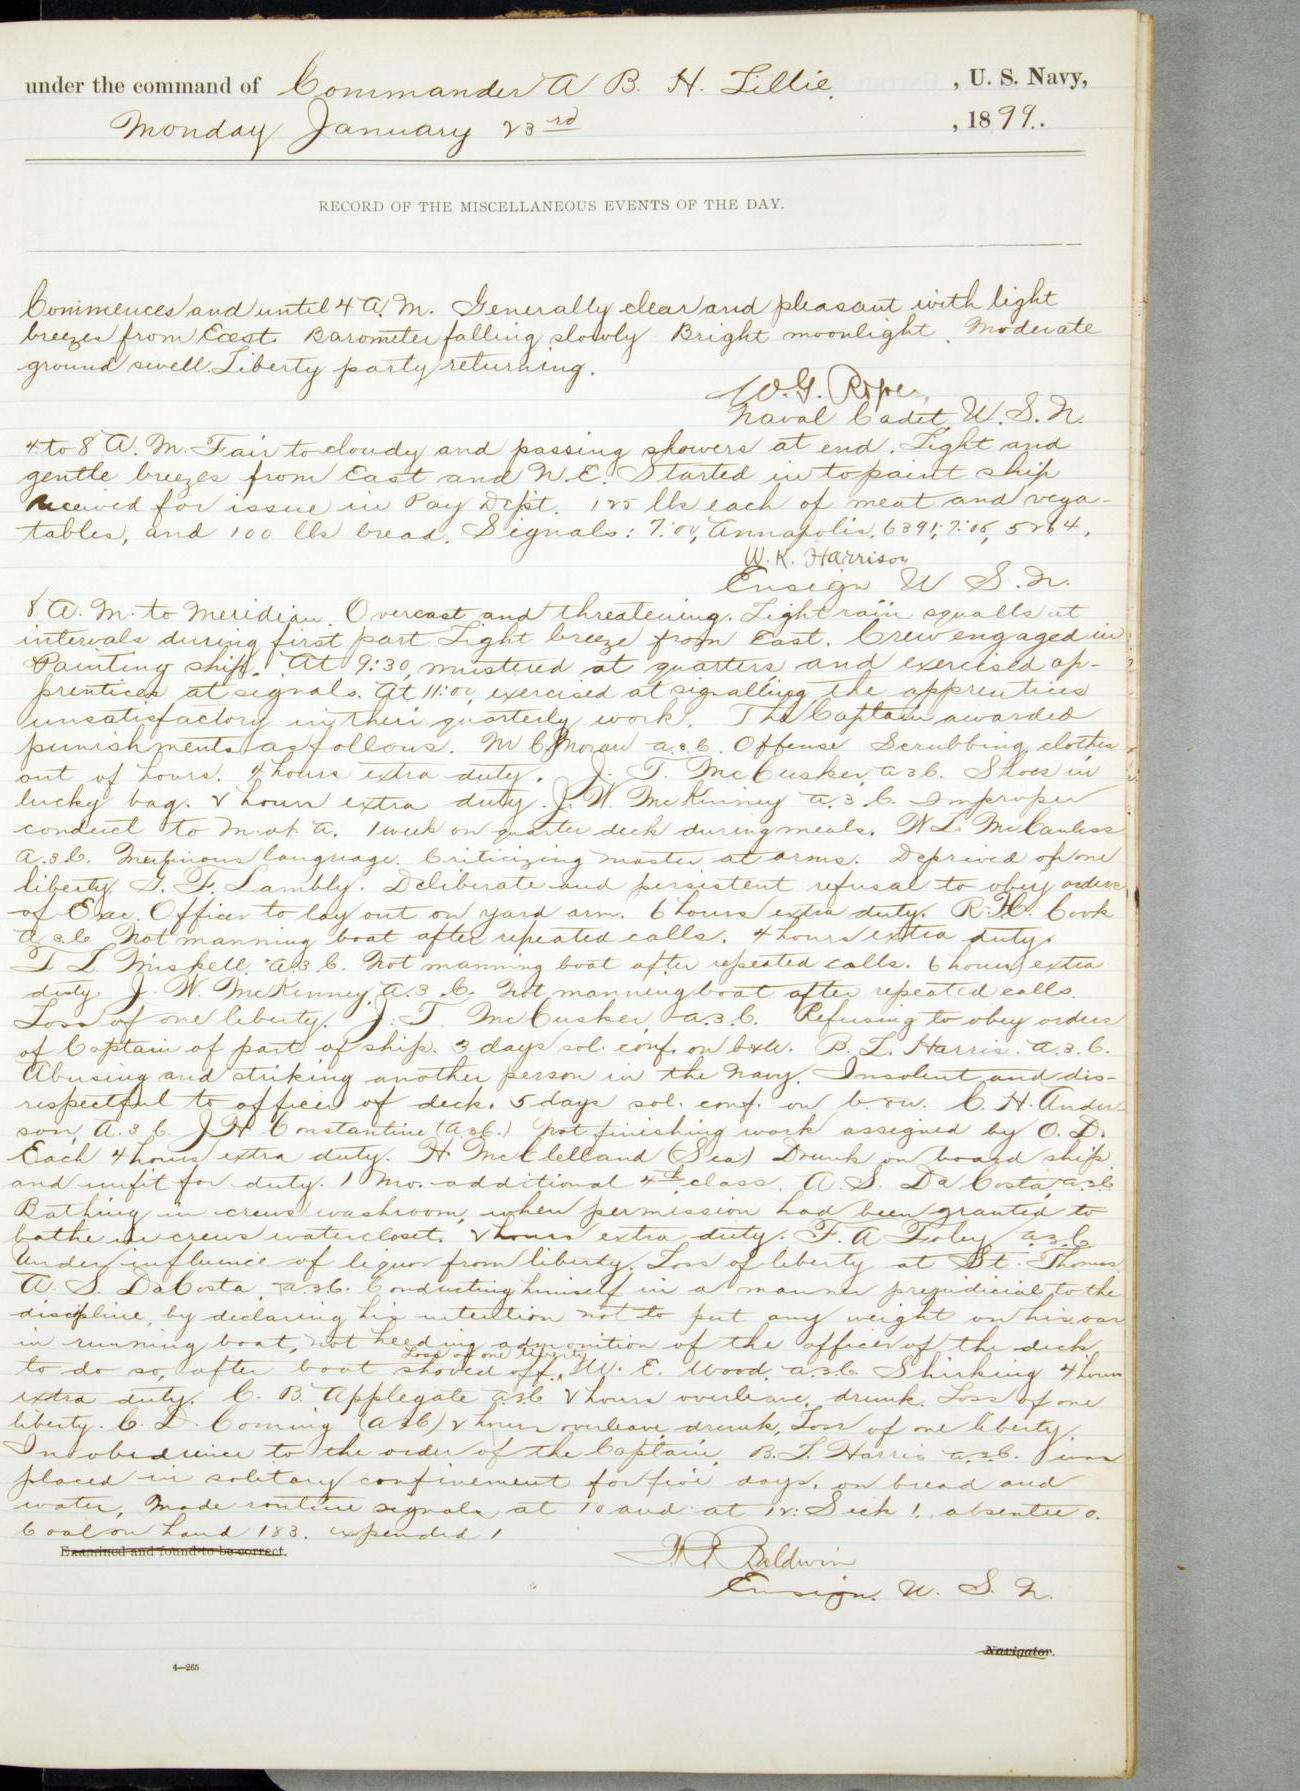 under the command of Commander A B. H. Lillie, , U. S. Navy,
Monday January 23rd , 1899.
RECORD OF THE MISCELLANEOUS EVENTS OF THE DAY.
Commences and until 4 A. M. Generally clear and pleasant with light
breezes from East. Barometer falling slowly Bright moonlight. Moderate
ground swell. Liberty party returning.
W. G. Roper,
Naval Cadet, U. S. N.
4 to 8 A. M. Fair to cloudy and passing showers at end. Light and
gentle breezes from East and N. E. Started in to paint ship
Received for issue in Pay Dept. 125 lbs each of meat and vega-
tables, and 100 lbs bread. Signals: 7:00, Annapolis, 6391; 7:05, 5264.
W. K. Harrison
Ensign U S. N.
8 A. M. to Meridian. Overcast and threatening. Light rain squalls at
intervals during first part Light breeze from East. Crew engaged in
Painting ship. At 9:30, mustered at quarters and exercised ap-
prentices at signals. At 11:00, exercised at signalling the apprentices
unsatisfactory in their quarterly work. The Captain awarded
punishments as follows. M C Moran a.3.C. Offense Scrubbing clothes
out of hours. 4 hours extra duty. J. T. McCusker a3c. Shoes in
lucky bag. 2 hours extra duty. J. W. McKinney a.3.C. Improper
conduct to M. at A. 1 week on quarter deck during meals. W L McCanless
A.3.C. Mutinous language. Criticizing master at arms. Deprived of one
liberty. G. F. Lambly. Deliberate and persistent refusal to obey orders
of Exec. Officer to lay out on yard arm. 6 hours extra duty. R. H. Cook
a 3.C Not manning boat after repeated calls. 4 hours extra duty.
T L Miskell. A.3.C. Not manning boat after repeated calls. 6 hours extra
duty. J. W. McKinney, A.3.C. Not manning boat after repeated calls.
Loss of one liberty. J. T. McCusker, a.3.C. Refusing to obey orders
of Captain of part of ship. 3 days sol. conf. on b&w. B. L. Harris. A.3.C.
Abusing and striking another person in the Navy. Insolent and dis-
respectful to officer of deck. 5 days sol. conf. on b. & w. C. H. Ander-
son, A.3 C. J H Constantine (A3C.) Not finishing work assigned by O. D.
Each 4 hours extra duty. H McClelland (Sea) Drunk on board ship
and unfit for duty. 1 Mo. additional 4th class. A. S. Da Costa, a3C
Bathing in crews washroom, when permission had been granted to
bathe in crews watercloset. 2 hours extra duty. F. A Foley a3C
Under influence of liquor from liberty. Loss of liberty at St. Thomas
A. S. DaCosta, a.3C. Conducting himself in a manner prejudicial to the
discipline, by declaring his intention not to put any weight on his oar
in running boat, not heeding admonition of the officer of the deck
to do so, after boat shoved off. Loss of one liberty. W. E. Wood, a.3.C. Shirking 4 hours
extra duty. C. B. Applegate a3C 2 hours overleave, drunk. Loss of one
liberty. C. D. Coming (A3C) 2 hours overleave, drunk, Loss of one liberty.
In obedience to the order of the Captain, B. L. Harris a.3.C. was
placed in solitary confinement for five days, on bread and
water, Made routine signals at 10 and at 12: Sick 1. absentee 0.
Coal on hand 183. expended 1
Examined and found to be correct.
Baldwin
Ensign. U. S. N.
Navigator.
4—265